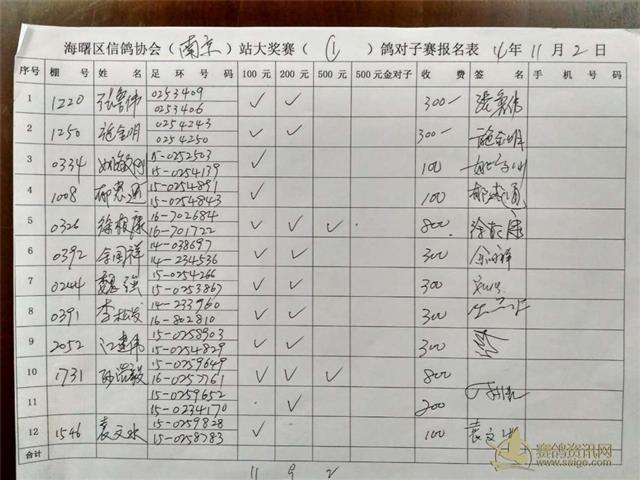 海曙区信鸽协会（南京）站大奖赛（1）鸽对子赛报名表 年11月2日
序号 棚号 姓名 足环号码 100元 200元 500元 500元金对子 收费 签名 手机号码
1 1220 张寅伟 0253409 ✓ ✓ 300—
0253406
2 1250 施金明 0254243 ✓ ✓ 300— 施金明
0254250
3 0334 15-0252503 ✓ 100
15-0254139
4 1008 15-0254891 ✓ 100
15-0254843
5 0326 16-702684 ✓ ✓ ✓ 800
16-701722
6 0392 余国祥 14-038697 ✓ ✓ 300 余国祥
14-234536
7 0244 魏强 15-0254266 ✓ ✓ 300
15-0253867
8 0391 李松发 14-233960 ✓ ✓ 300
16-802810
9 2052 江建伟 15-0258903 ✓ ✓ 300
15-0254829
10 1731 15-0259649 ✓ ✓ ✓ 800
16-0257761
11 15-0259652 ✓ 200
15-0234170
12 1546 袁文水 15-0259828 ✓ 100 袁文水
15-0258783
合计
11 9 2
赛鸽资讯网
www.saige.com